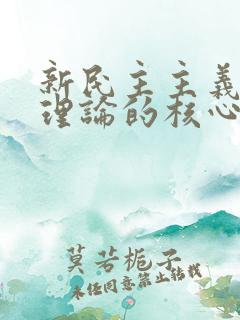 新民主主義
理論的核心
莫若梔子
未經同意禁止轉載